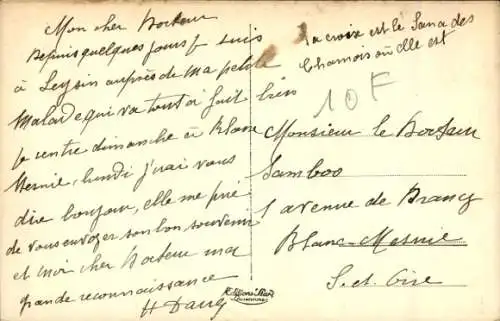 Mon cher Docteur
Depuis quelques jours je suis
à Leysin auprès de ma petite
Malade qui va tout à fait bien
je rentre dimanche à Blanc
Mesnil, lundi j'irai vous
dire bonjour, elle me prie
de vous envoyer son bon souvenir
et moi cher Docteur ma
grande reconnaissance
H Dang
la croix est le Sana des
Chamois où elle est
10F
Monsieur le Docteur
Sambos
1 avenue de Drancy
Blanc-Mesnil
S. et Oise